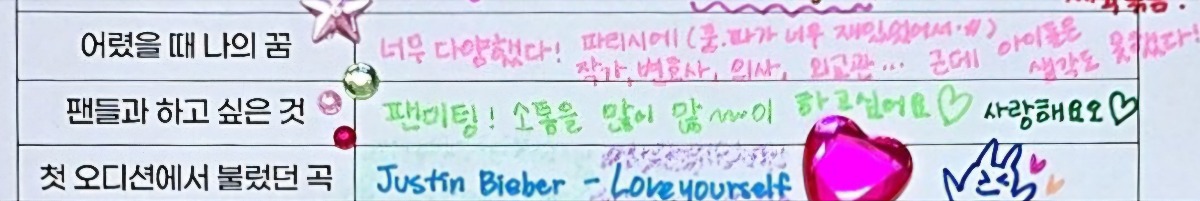 어렸을 때 나의 꿈
너무 다양했다! 파티시에 (꿈.파가 너무 재밌었어서·ㅆ)
작가, 변호사, 의사, 외교관... 근데 아이돌은
생각도 못했다!
팬들과 하고 싶은 것
팬미팅! 소통을 많이 많~~이 하고싶어요♡ 사랑해요오♡
첫 오디션에서 불렀던 곡
Justin Bieber - Love yourself